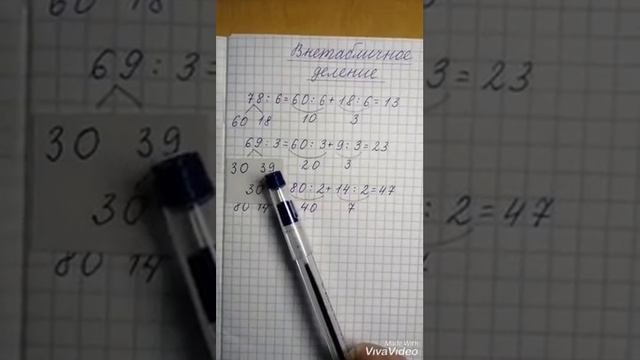 Внетабличное
деление
78 : 6 = 60 : 6 + 18 : 6 = 13
60 18 10 3
69 : 3 = 60 : 3 + 9 : 3 = 23
30 39 20 3
30 80 : 2 + 14 : 2 = 47
80 14 40 7
69 : 3
30 39
30
80 14
= 23
2 = 47
Made With
VivaVideo